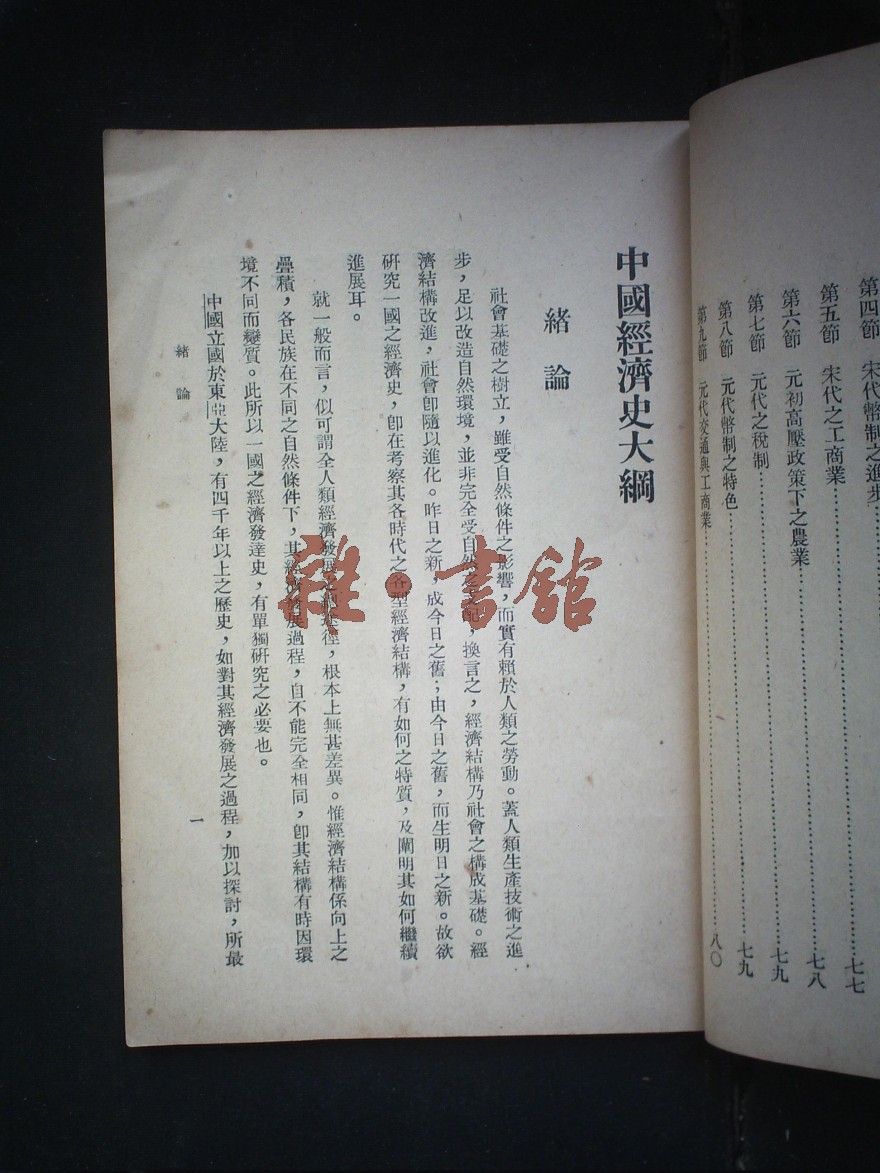 第四節　宋代幣制之進步……七七
第五節　宋代之工商業……七八
第六節　元初高壓政策下之農業……七九
第七節　元代之稅制……七九
第八節　元代幣制之特色……八〇
第九節　元代交通與工商業
中國經濟史大綱
緒論
社會基礎之樹立，雖受自然條件之影響，而實有賴於人類之勞動。蓋人類生產技術之進
步，足以改造自然環境，並非完全受自然之支配，換言之，經濟結構乃社會之構成基礎。經
濟結構改進，社會卽隨以進化。昨日之新，成今日之舊；由今日之舊，而生明日之新。故欲
硏究一國之經濟史，卽在考察其各時代之各型經濟結構，有如何之特質，及闡明其如何繼續
進展耳。
就一般而言，似可謂全人類經濟發展之途徑，根本上無甚差異。惟經濟結構係向上之
疊積，各民族在不同之自然條件下，其經濟發展過程，自不能完全相同，卽其結構有時因環
境不同而變質。此所以一國之經濟發達史，有單獨硏究之必要也。
中國立國於東亞大陸，有四千年以上之歷史，如對其經濟發展之過程，加以探討，所最
緒論
一
雜·書館